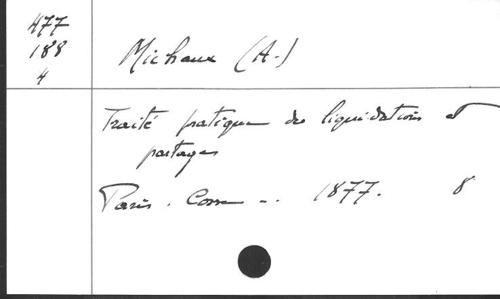 477
188
4
Michaux (A.)
Traité pratique des liquidations et
partages
Paris. Cosse .. 1877. 8